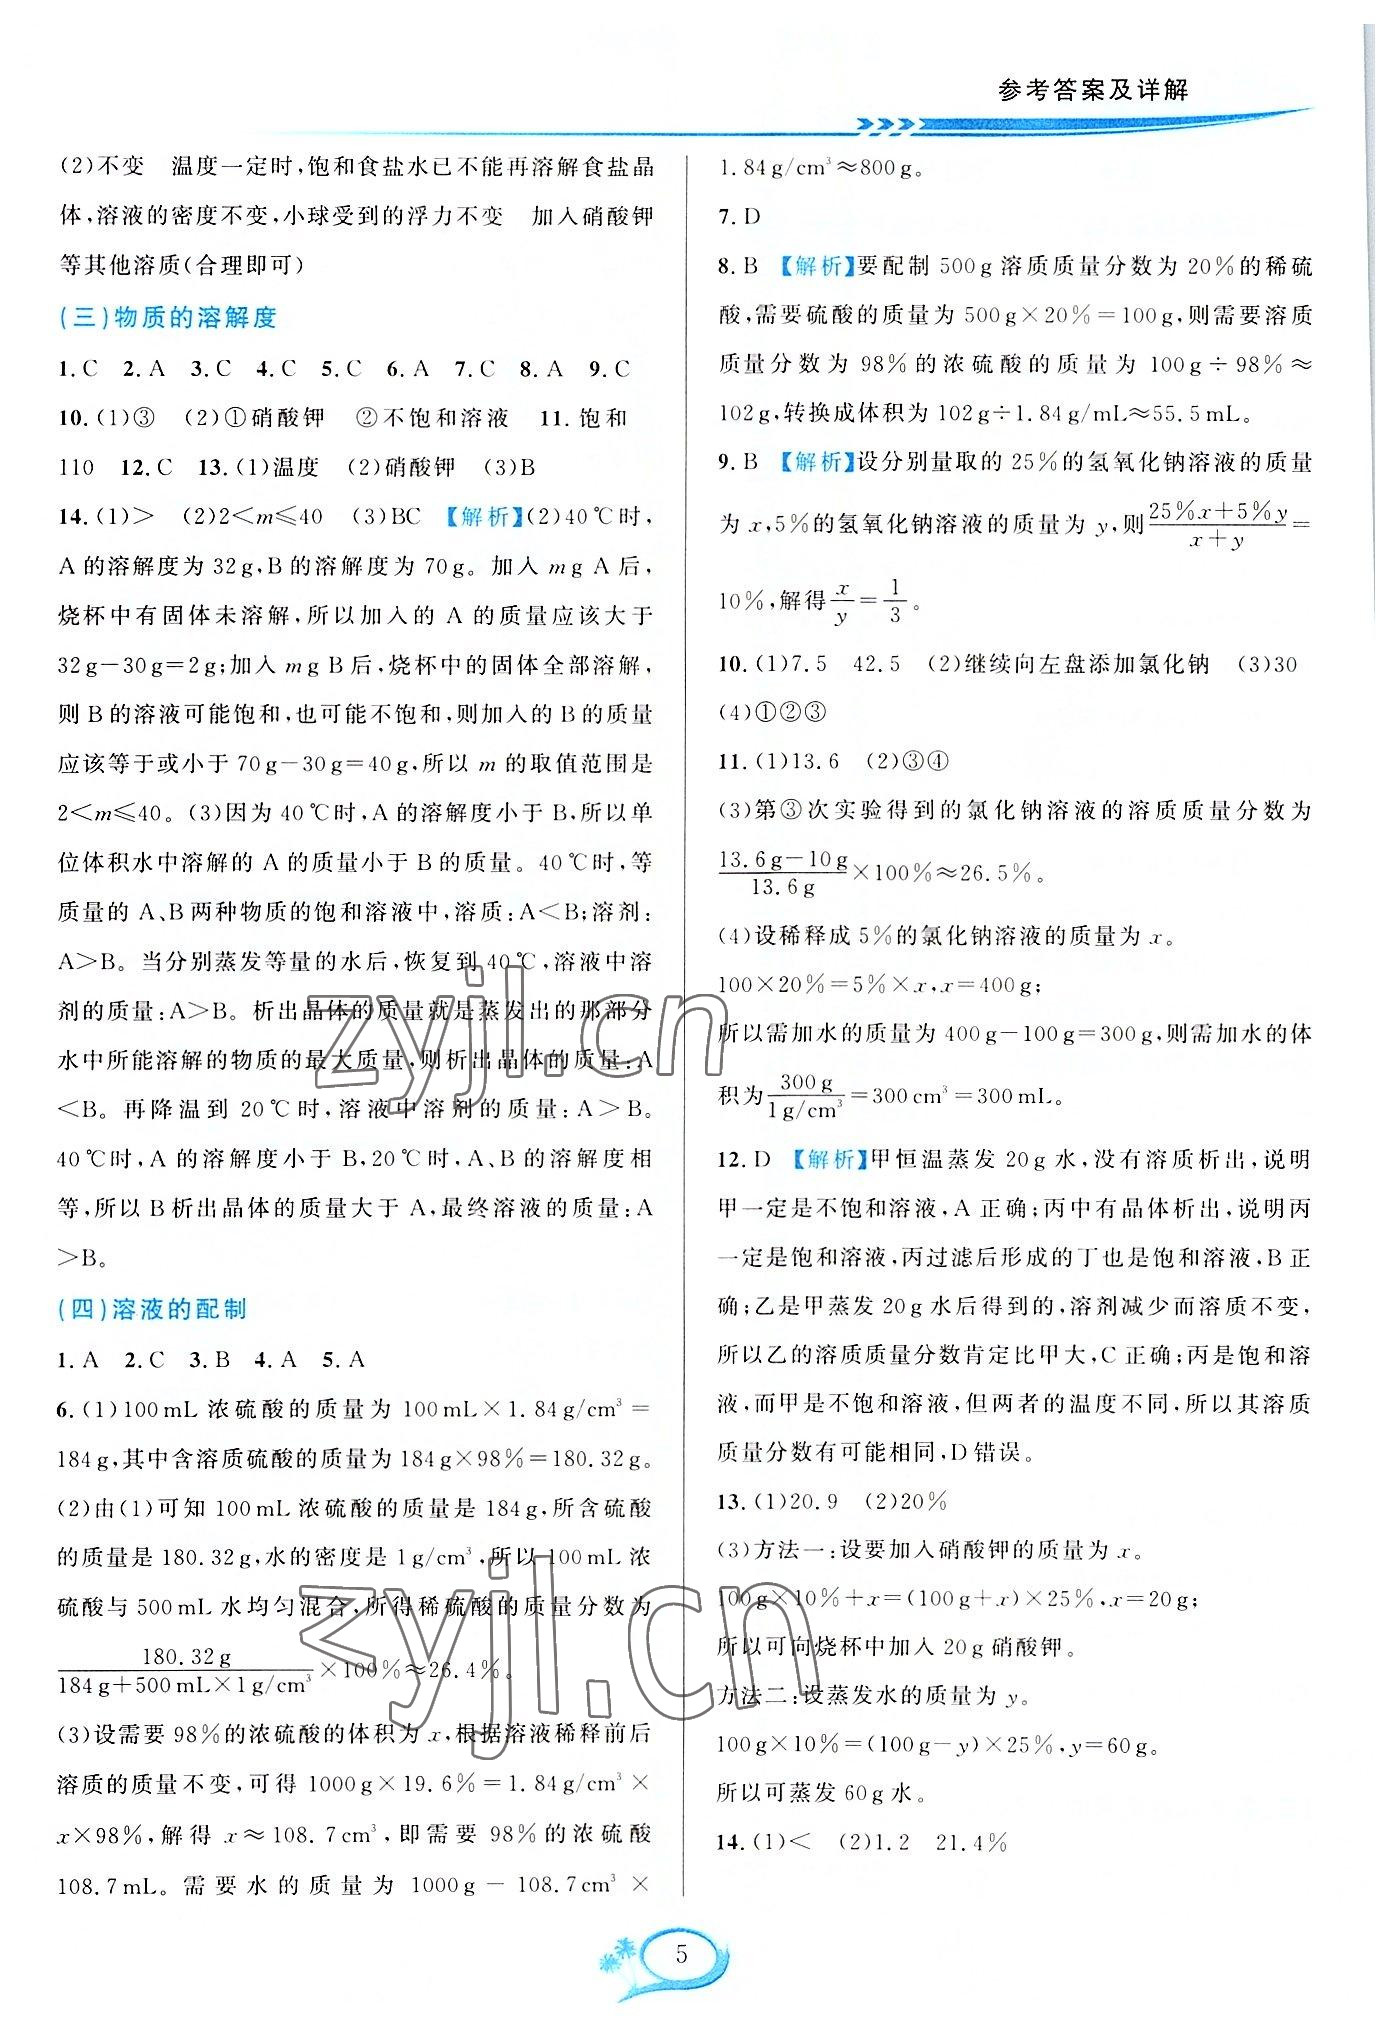 参考答案及详解
(2)不变　温度一定时,饱和食盐水已不能再溶解食盐晶
体,溶液的密度不变,小球受到的浮力不变　加入硝酸钾
等其他溶质(合理即可)
(三)物质的溶解度
1.C　2.A　3.C　4.C　5.C　6.A　7.C　8.A　9.C
10.(1)③　(2)①硝酸钾　②不饱和溶液　11.饱和
110　12.C　13.(1)温度　(2)硝酸钾　(3)B
14.(1)>　(2)2<m≤40　(3)BC　【解析】(2)40℃时,
A的溶解度为32g,B的溶解度为70g。加入m g A后,
烧杯中有固体未溶解,所以加入的A的质量应该大于
32g-30g=2g;加入m g B后,烧杯中的固体全部溶解,
则B的溶液可能饱和,也可能不饱和,则加入的B的质量
应该等于或小于70g-30g=40g,所以m的取值范围是
2<m≤40。(3)因为40℃时,A的溶解度小于B,所以单
位体积水中溶解的A的质量小于B的质量。40℃时,等
质量的A、B两种物质的饱和溶液中,溶质:A<B;溶剂:
A>B。当分别蒸发等量的水后,恢复到40℃,溶液中溶
剂的质量:A>B。析出晶体的质量就是蒸发出的那部分
水中所能溶解的物质的最大质量,则析出晶体的质量:A
<B。再降温到20℃时,溶液中溶剂的质量:A>B。
40℃时,A的溶解度小于B,20℃时,A、B的溶解度相
等,所以B析出晶体的质量大于A,最终溶液的质量:A
>B。
(四)溶液的配制
1.A　2.C　3.B　4.A　5.A
6.(1)100mL浓硫酸的质量为100mL×1.84g/cm³=
184g,其中含溶质硫酸的质量为184g×98%=180.32g。
(2)由(1)可知100mL浓硫酸的质量是184g,所含硫酸
的质量是180.32g,水的密度是1g/cm³,所以100mL浓
硫酸与500mL水均匀混合,所得稀硫酸的质量分数为
180.32g/(184g+500mL×1g/cm³)×100%≈26.4%。
(3)设需要98%的浓硫酸的体积为x,根据溶液稀释前后
溶质的质量不变,可得1000g×19.6%=1.84g/cm³×
x×98%,解得x≈108.7cm³,即需要98%的浓硫酸
108.7mL。需要水的质量为1000g-108.7cm³×
1.84g/cm³≈800g。
7.D
8.B　【解析】要配制500g溶质质量分数为20%的稀硫
酸,需要硫酸的质量为500g×20%=100g,则需要溶质
质量分数为98%的浓硫酸的质量为100g÷98%≈
102g,转换成体积为102g÷1.84g/mL≈55.5mL。
9.B　【解析】设分别量取的25%的氢氧化钠溶液的质量
为x,5%的氢氧化钠溶液的质量为y,则(25%x+5%y)/(x+y)=
10%,解得x/y=1/3。
10.(1)7.5　42.5　(2)继续向左盘添加氯化钠　(3)30
(4)①②③
11.(1)13.6　(2)③④
(3)第③次实验得到的氯化钠溶液的溶质质量分数为
(13.6g-10g)/13.6g×100%≈26.5%。
(4)设稀释成5%的氯化钠溶液的质量为x。
100×20%=5%×x,x=400g;
所以需加水的质量为400g-100g=300g,则需加水的体
积为300g/(1g/cm³)=300cm³=300mL。
12.D　【解析】甲恒温蒸发20g水,没有溶质析出,说明
甲一定是不饱和溶液,A正确;丙中有晶体析出,说明丙
一定是饱和溶液,丙过滤后形成的丁也是饱和溶液,B正
确;乙是甲蒸发20g水后得到的,溶剂减少而溶质不变,
所以乙的溶质质量分数肯定比甲大,C正确;丙是饱和溶
液,而甲是不饱和溶液,但两者的温度不同,所以其溶质
质量分数有可能相同,D错误。
13.(1)20.9　(2)20%
(3)方法一:设要加入硝酸钾的质量为x。
100g×10%+x=(100g+x)×25%,x=20g;
所以可向烧杯中加入20g硝酸钾。
方法二:设蒸发水的质量为y。
100g×10%=(100g-y)×25%,y=60g。
所以可蒸发60g水。
14.(1)<　(2)1.2　21.4%
zyjl.cn
zyjl.cn
5